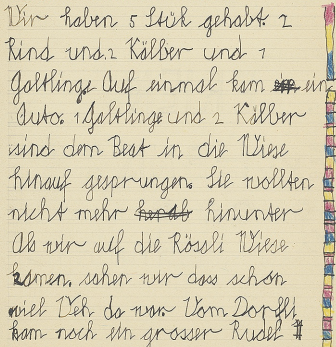 Wir haben 5 Stük gehabt. 2
Rind und 2 Kälber und 1
Galtlinge. Auf einmal kam ein
Auto. 1 Galtlinge und 2 Kälber
sind dem Beat in die Wiese
hinauf gesprungen. Sie wollten
nicht mehr herab hinunter
Als wir auf die Rössli Wiese
kamen, sahen wir dass schon
viel Veh da war. Vom Dorfli
kam noch ein grosser Rudel